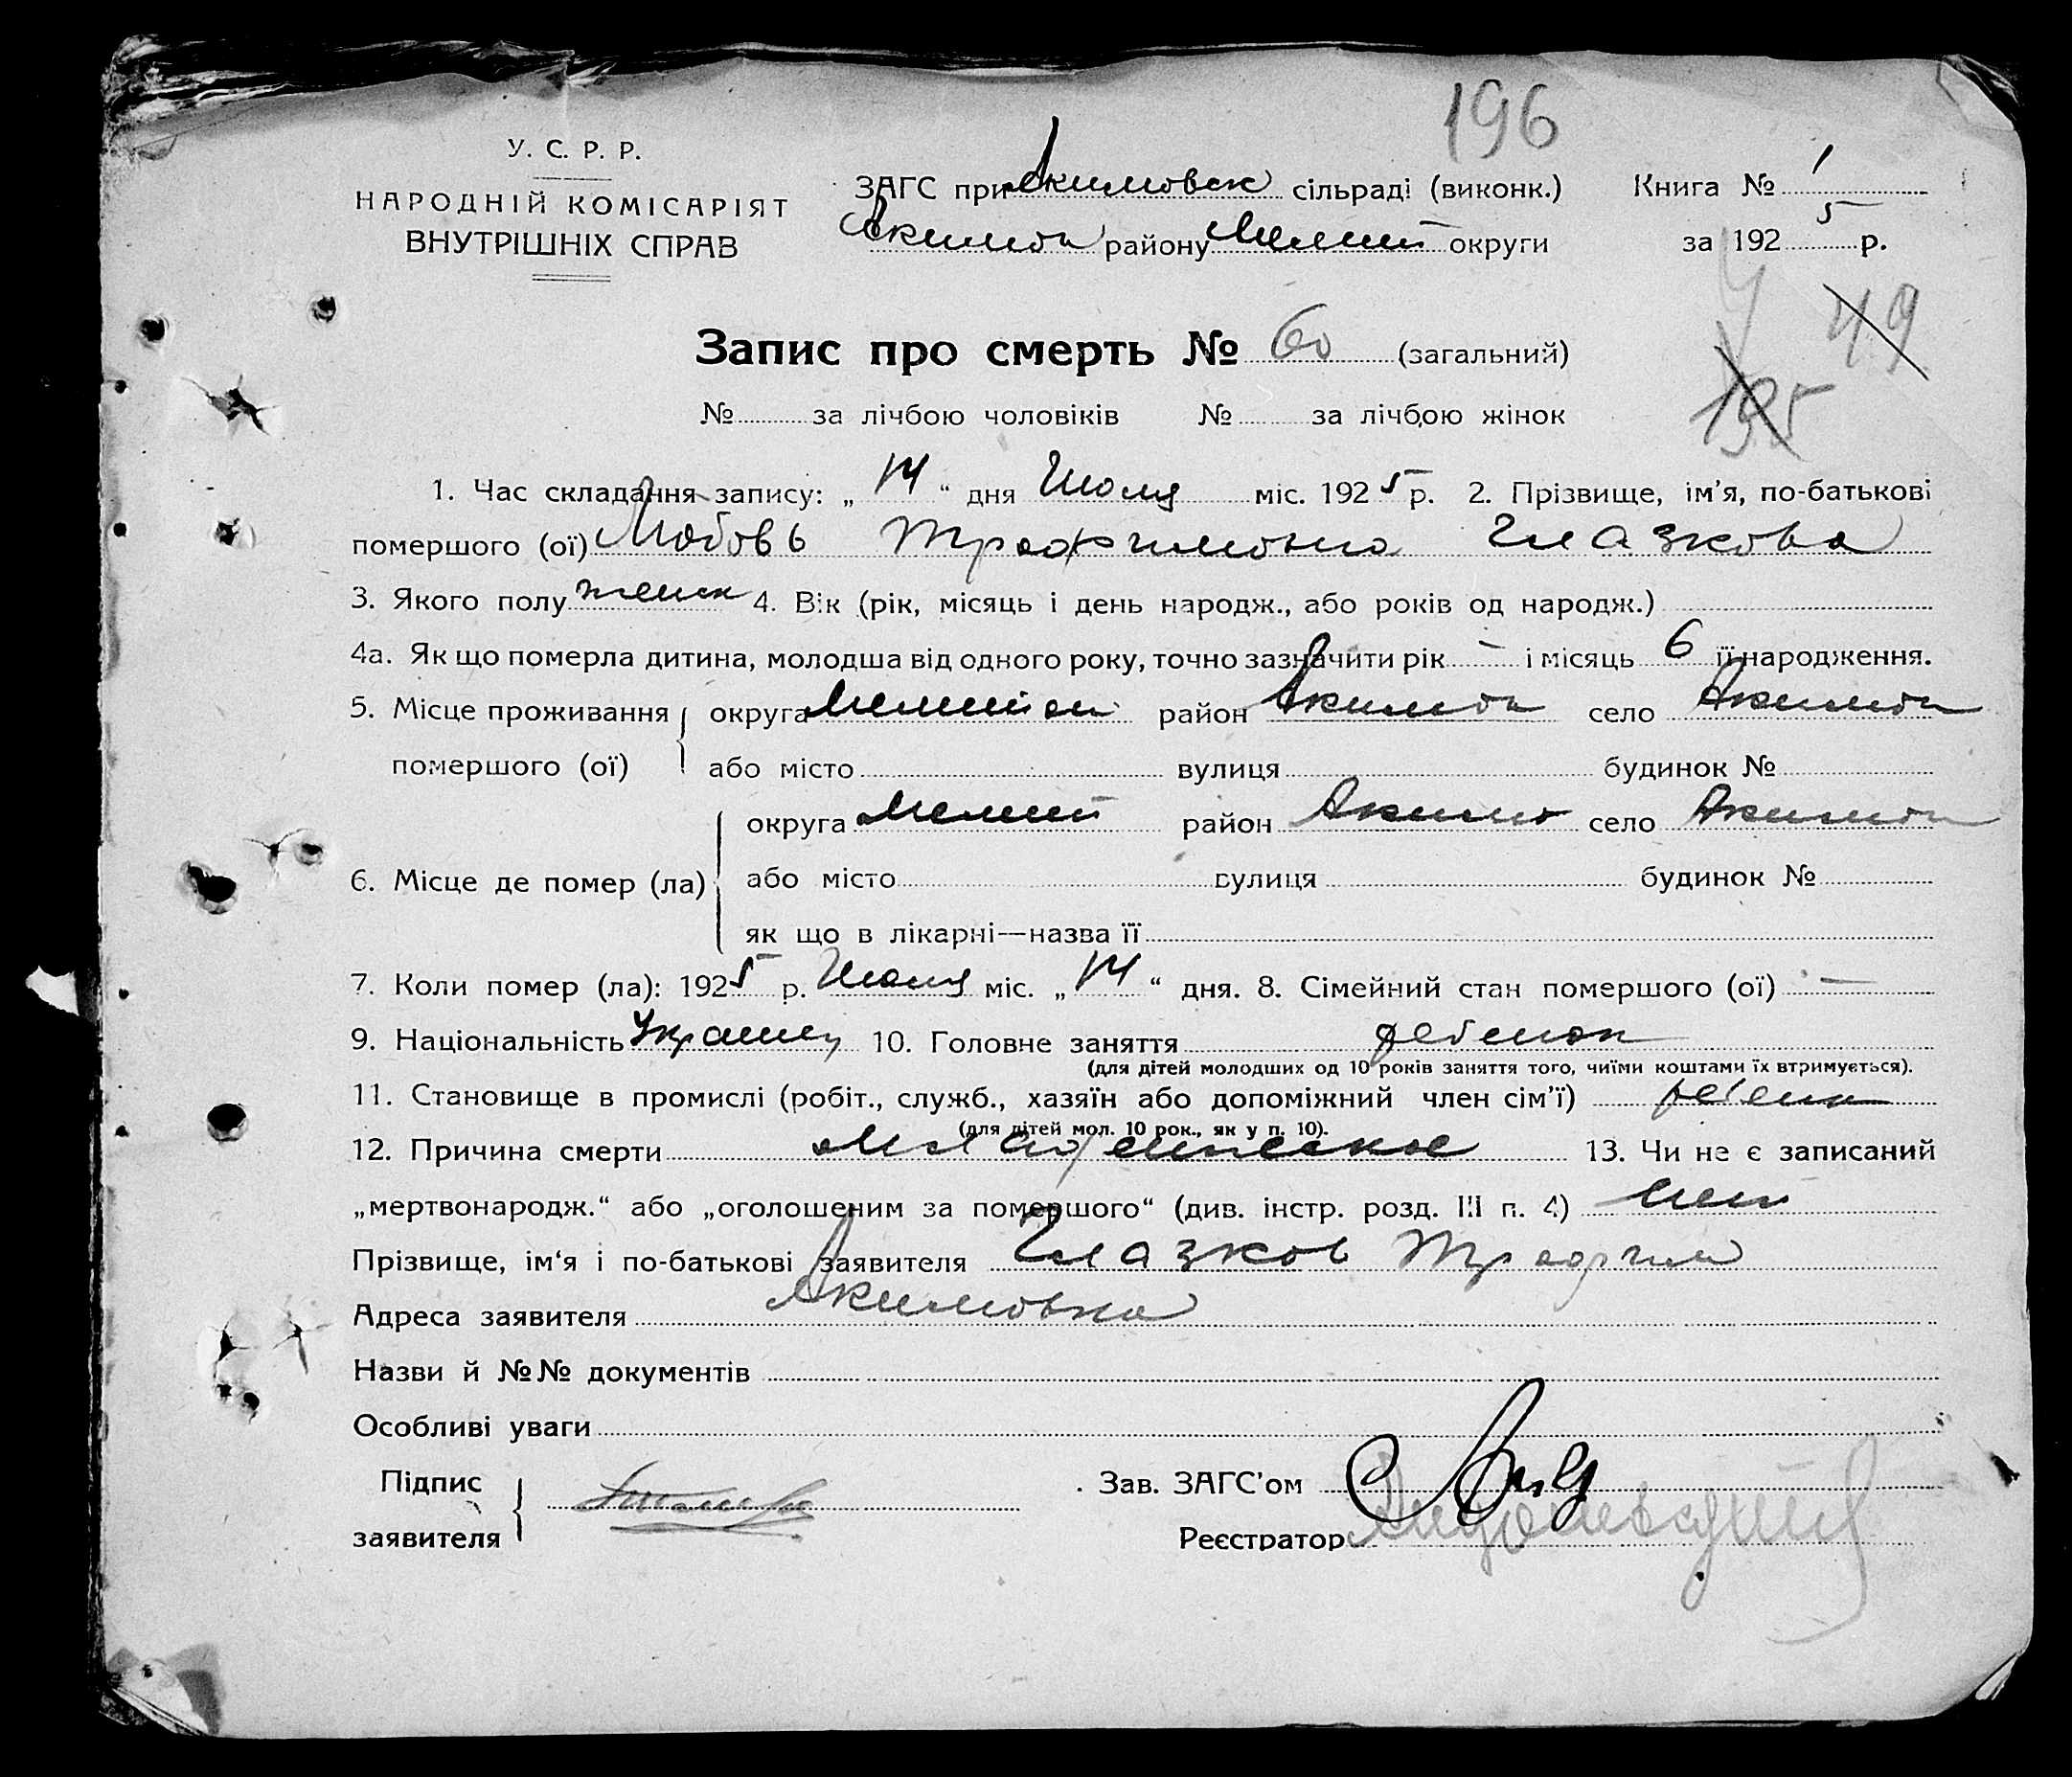 196
У. С. Р. Р.
НАРОДНІЙ КОМІСАРІЯТ
ВНУТРІШНІХ СПРАВ
ЗАГС при Акимовск сільраді (виконк.)
Акимов району Мелит округи
Книга № 1
за 1925 р.
49
195
Запис про смерть № 60 (загальний)
№ за лічбою чоловіків № за лічбою жінок
1. Час складання запису: „14“ дня Июля міс. 1925 р. 2. Прізвище, ім'я, по-батькові
помершого (ої) Любовь Трофимовна Глазкова
3. Якого полу женск 4. Вік (рік, місяць і день народж., або років од народж.)
4а. Як що померла дитина, молодша від одного року, точно зазначити рік – і місяць 6 її народження.
5. Місце проживання округа район Акимов село Акимов
помершого (ої) або місто вулиця будинок №
округа Мелит район Акимо село Акимов
6. Місце де помер (ла) або місто вулиця будинок №
як що в лікарні—назва її
7. Коли помер (ла): 1925 р. Июля міс. „14“ дня. 8. Сімейний стан помершого (ої) —
9. Національність 10. Головне заняття ребенок
(для дітей молодших од 10 років заняття того, чиїми коштами їх втримується).
11. Становище в промислі (робіт., служб., хазяїн або допоміжний член сім'ї)
(для дітей мол. 10 рок., як у п. 10).
12. Причина смерти младенческое 13. Чи не є записаний
„мертвонародж.“ або „оголошеним за помершого“ (див. інстр. розд. III п. 4) нет
Прізвище, ім'я і по-батькові заявителя Глазков Трофим
Адреса заявителя Акимовка
Назви й №№ документів
Особливі уваги
Підпис
заявителя
Зав. ЗАГС'ом
Реєстратор